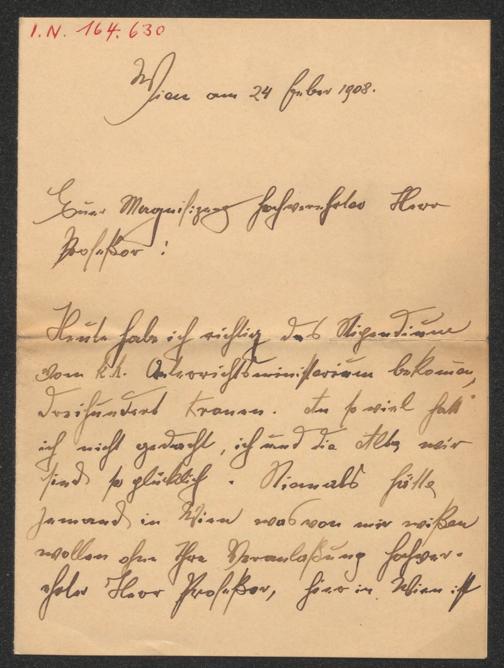 I.N. 164.630
Wien am 24 Feber 1908.
Euer Magnifizenz hochverehrter Herr
Profeßor!
Heute habe ich richtig das Stipendium
vom k.k. Unterrichtsministerium bekomen,
dreihundert Kronen. An so viel hatt
ich nicht gedacht, ich und die Alte wir
sind so glücklich. Niemals hätte
jemand in Wien was von mir wißen
wollen ohne Ihre Veranlaßung hochver-
ehrter Herr Profeßor, hier in Wien ist